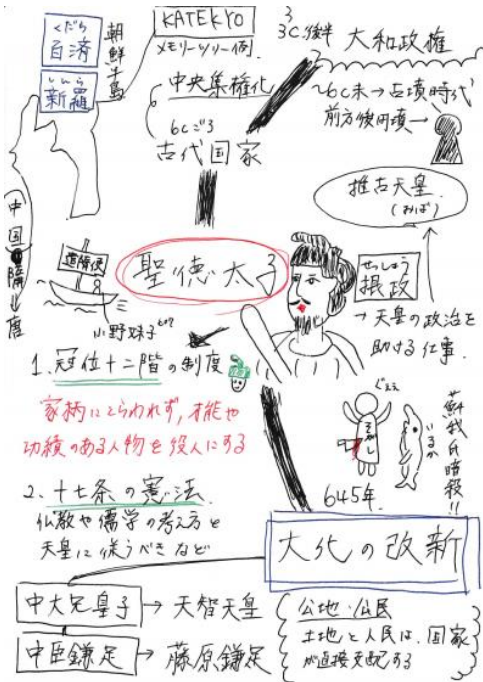 くだら
百済
しんら
新羅
朝鮮半島
KATEKYO
メモリーツリー例
中央集権化
6Cごろ
古代国家
3
3C後半
大和政権
~6C末→古墳時代
前方後円墳→
推古天皇
(おば)
中国
隋
↓
唐
遣隋使
小野妹子
聖徳太子
せっしょう
摂政
→天皇の政治を
助ける仕事
1. 冠位十二階の制度
家柄にとらわれず,才能や
功績のある人物を役人にする
2. 十七条の憲法
仏教や儒学の考え方と
天皇に従うべきなど
ぐぇぇ
そがし
いるか
蘇我氏暗殺!!
645年
大化の改新
中大兄皇子→天智天皇
中臣鎌足→藤原鎌足
公地・公民
土地と人民は、国家
が直接支配する